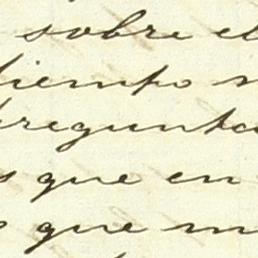 sobre el
tiempo
pregunta
que en
que